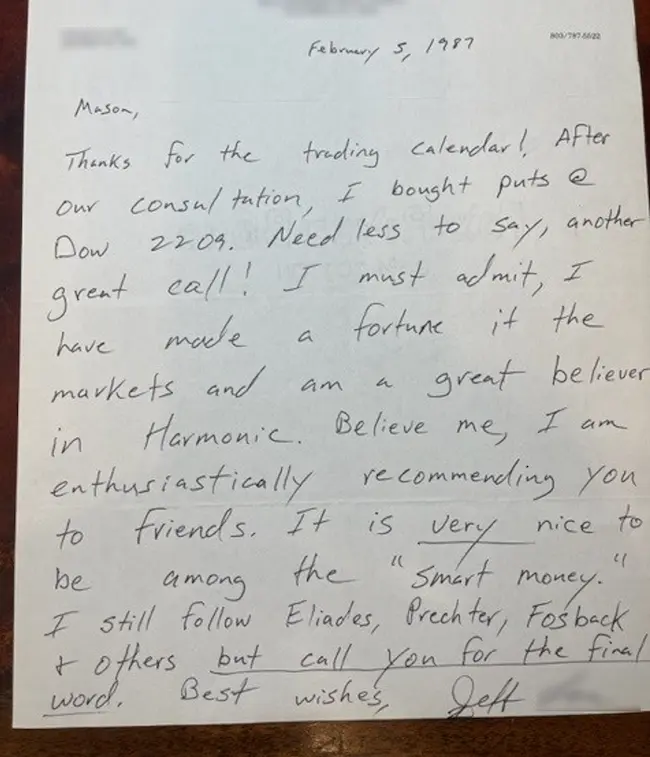 February 5, 1987
800/797-5522
Mason,
Thanks for the trading calendar! After
our consultation, I bought puts @
Dow 2209. Needless to say, another
great call! I must admit, I
have made a fortune it the
markets and am a great believer
in Harmonic. Believe me, I am
enthusiastically recommending you
to friends. It is very nice to
be among the "smart money."
I still follow Eliades, Prechter, Fosback
+ others but call you for the final
word. Best wishes, Jeff